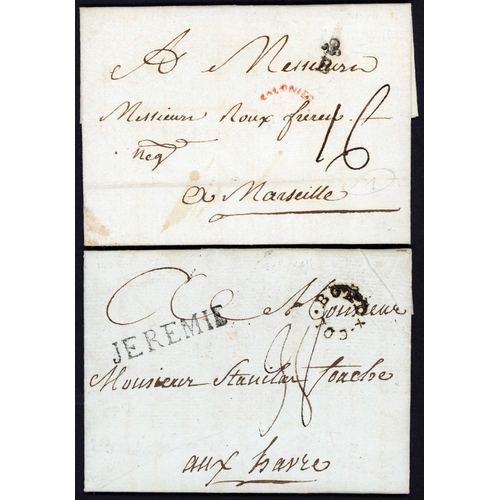 A Messieurs
COLONIES
Messieurs Roux freres
16
Neg^t
a Marseille
A Monsieur
JEREMIE
Monsieur Stanislas foache
aux havre